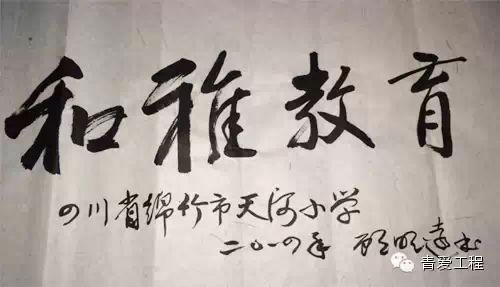 和雅教育
四川省绵竹市天河小学
二〇一四年 顾明远书
青爱工程